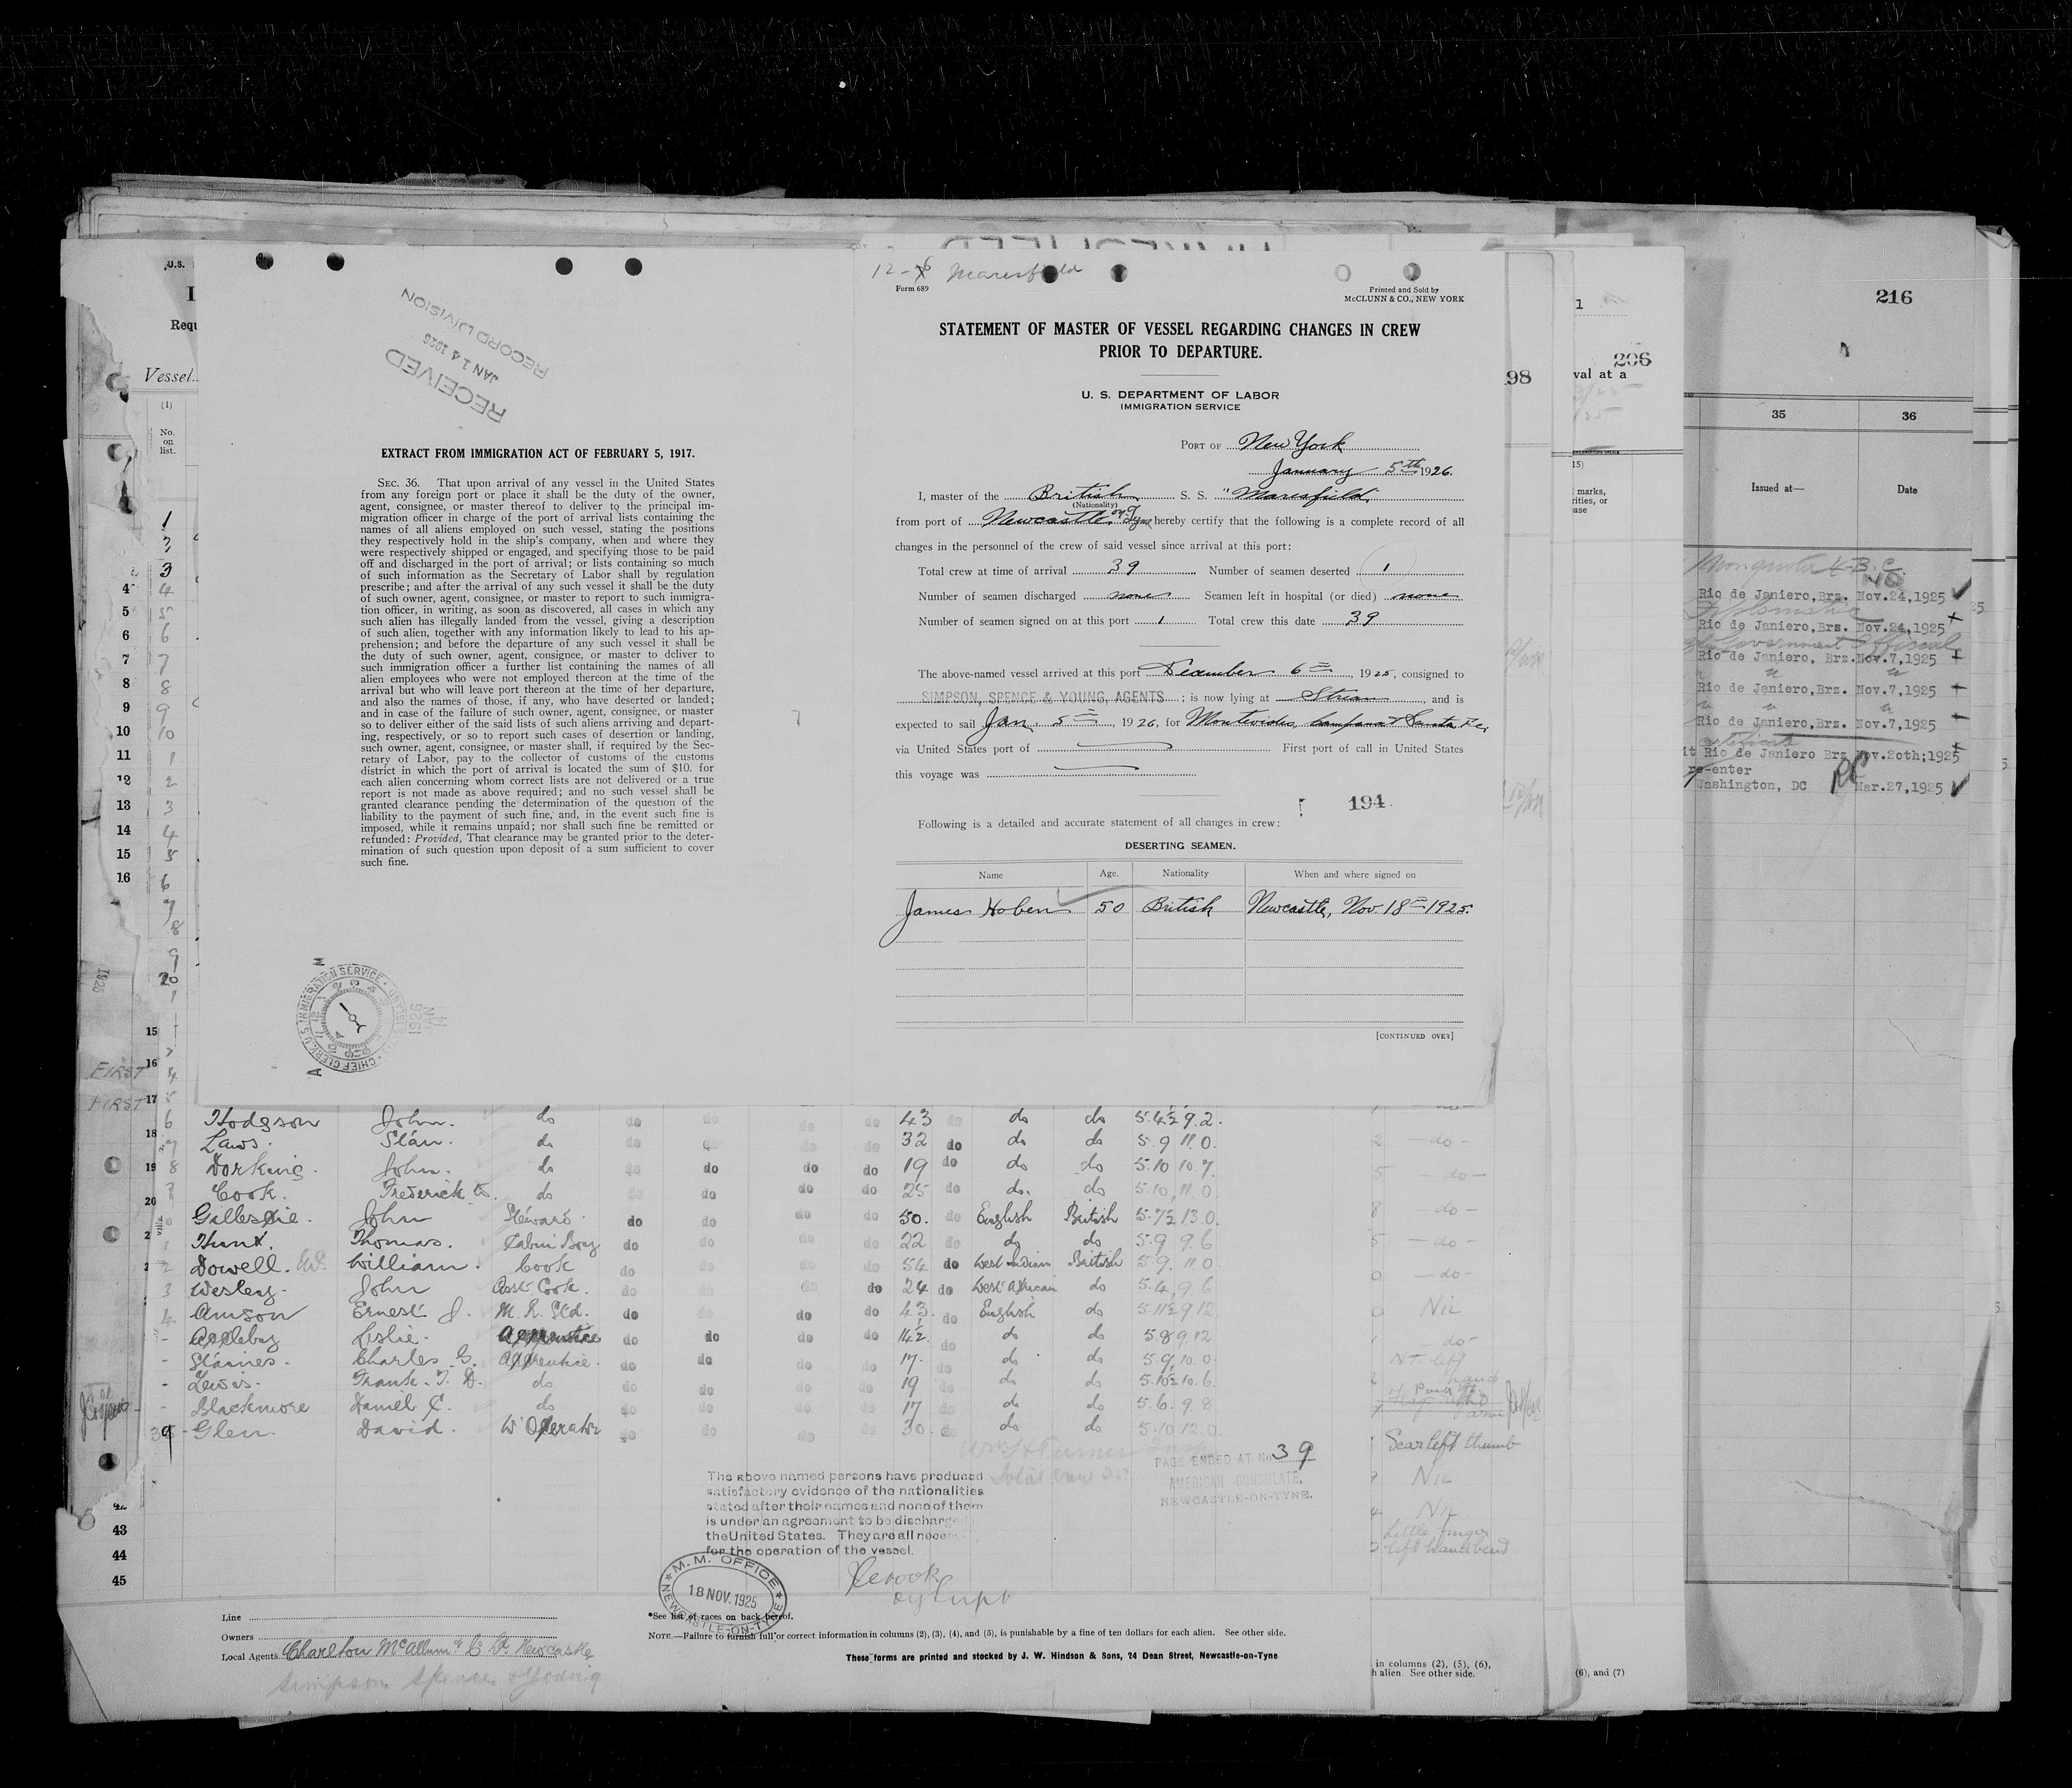 U.S.
Requ
Vessel
(1)
No.
on
list.
RECEIVED
JAN 14 1926
RECORD DIVISION
EXTRACT FROM IMMIGRATION ACT OF FEBRUARY 5, 1917.
SEC. 36. That upon arrival of any vessel in the United States
from any foreign port or place it shall be the duty of the owner,
agent, consignee, or master thereof to deliver to the principal im-
migration officer in charge of the port of arrival lists containing the
names of all aliens employed on such vessel, stating the positions
they respectively hold in the ship's company, when and where they
were respectively shipped or engaged, and specifying those to be paid
off and discharged in the port of arrival; or lists containing so much
of such information as the Secretary of Labor shall by regulation
prescribe; and after the arrival of any such vessel it shall be the duty
of such owner, agent, consignee, or master to report to such immigra-
tion officer, in writing, as soon as discovered, all cases in which any
such alien has illegally landed from the vessel, giving a description
of such alien, together with any information likely to lead to his ap-
prehension; and before the departure of any such vessel it shall be
the duty of such owner, agent, consignee, or master to deliver to
such immigration officer a further list containing the names of all
alien employees who were not employed thereon at the time of the
arrival but who will leave port thereon at the time of her departure,
and also the names of those, if any, who have deserted or landed;
and in case of the failure of such owner, agent, consignee, or master
so to deliver either of the said lists of such aliens arriving and depart-
ing, respectively, or so to report such cases of desertion or landing,
such owner, agent, consignee, or master shall, if required by the Sec-
retary of Labor, pay to the collector of customs of the customs
district in which the port of arrival is located the sum of $10. for
each alien concerning whom correct lists are not delivered or a true
report is not made as above required; and no such vessel shall be
granted clearance pending the determination of the question of the
liability to the payment of such fine, and, in the event such fine is
imposed, while it remains unpaid; nor shall such fine be remitted or
refunded: Provided, That clearance may be granted prior to the deter-
mination of such question upon deposit of a sum sufficient to cover
such fine.
CHIEF CLERK, U.S. IMMIGRATION SERVICE
1926
Maresfield
Form 689
Printed and Sold by
McCLUNN & CO., NEW YORK
STATEMENT OF MASTER OF VESSEL REGARDING CHANGES IN CREW
PRIOR TO DEPARTURE.
U. S. DEPARTMENT OF LABOR
IMMIGRATION SERVICE
PORT OF New York
January 5th 1926.
I, master of the British S. S. "Maresfield"
(Nationality)
from port of Newcastle on Tyne hereby certify that the following is a complete record of all
changes in the personnel of the crew of said vessel since arrival at this port:
Total crew at time of arrival 39 Number of seamen deserted 1
Number of seamen discharged none Seamen left in hospital (or died) none
Number of seamen signed on at this port 1 Total crew this date 39
The above-named vessel arrived at this port December 6th, 1925, consigned to
SIMPSON, SPENCE & YOUNG, AGENTS; is now lying at Stream, and is
expected to sail Jan. 5th, 1926, for Montevideo, Campana & Santa Fe
via United States port of First port of call in United States
this voyage was
194
Following is a detailed and accurate statement of all changes in crew:
DESERTING SEAMEN.
Name Age. Nationality When and where signed on
James Hoben 50 British Newcastle, Nov. 18th 1925.
[CONTINUED OVER]
FIRST
FIRST
Hodgson John. do do do do do 43 do do do 5.4½ 9.2.
Laws. Stan. do do do do do 32 do do do 5.9 11.0.
Dorking. John. do do do do do 19 do do do 5.10 10.7
Cook. Frederick do do do do do 25 do do. do 5.10 11.0
Gillespie. John Steward do do do do 50. do English British 5.7½ 13.0.
Hunt. Thomas. Cabin Boy do do do do 22 do do do 5.9 9.6
Dowell. William. Cook do do do do 54 do West Indian British 5.9. 11.0
Wesley. John Asst Cook. do do do do 24 do West African do 5.4 9.6
Amson Ernest J. M. R. Std. do do do do 43. do English do 5.11½ 9.12
Appleby Leslie. Apprentice do do do do 14½ do do do 5.8 9.12
Staines. Charles G. Apprentice. do do do do 17. do do do 5.9 10.0
Lewis. Frank. T. D. do do do do do 19 do do do 5.10½ 10.6.
Blackmore Daniel C. do do do do do 17 do do do 5.6. 9.8
39 Glen. David. W Operator do do do 30. do do do 5.10 12.0
PAGE ENDED AT No. 39
AMERICAN CONSULATE,
NEWCASTLE-ON-TYNE.
The above named persons have produced
satisfactory evidence of the nationalities
stated after their names and none of them
is under an agreement to be discharge
the United States. They are all nece
for the operation of the vessel.
M. M. OFFICE
18 NOV. 1925
NEWCASTLE-ON-TYNE
43
44
45
Line
Owners
Local Agents Charlton McAllum & Co Ld Newcastle
Simpson Spence & Young
*See list of races on back hereof.
NOTE.—Failure to furnish full or correct information in columns (2), (3), (4), and (5), is punishable by a fine of ten dollars for each alien. See other side.
These forms are printed and stocked by J. W. Hindson & Sons, 24 Dean Street, Newcastle-on-Tyne
Nil
Scar left thumb
Nil
Nil
Little finger
left hand bend
in columns (2), (5), (6),
h alien. See other side.
(6), and (7)
98
1
206
val at a
15)
marks,
rities, or
ase
216
35 36
Issued at— Date
Rio de Janiero,Brz. Nov.24,1925
Diplomatic
Rio de Janiero,Brz. Nov.24,1925
Government Official
Rio de Janiero, Brz.Nov.7,1925
Rio de Janiero,Brz. Nov.7,1925
Rio de Janiero,Brz. Nov.7,1925
it Rio de Janiero Brz Nov.20th;1925
re-enter
Washington, DC Mar.27,1925